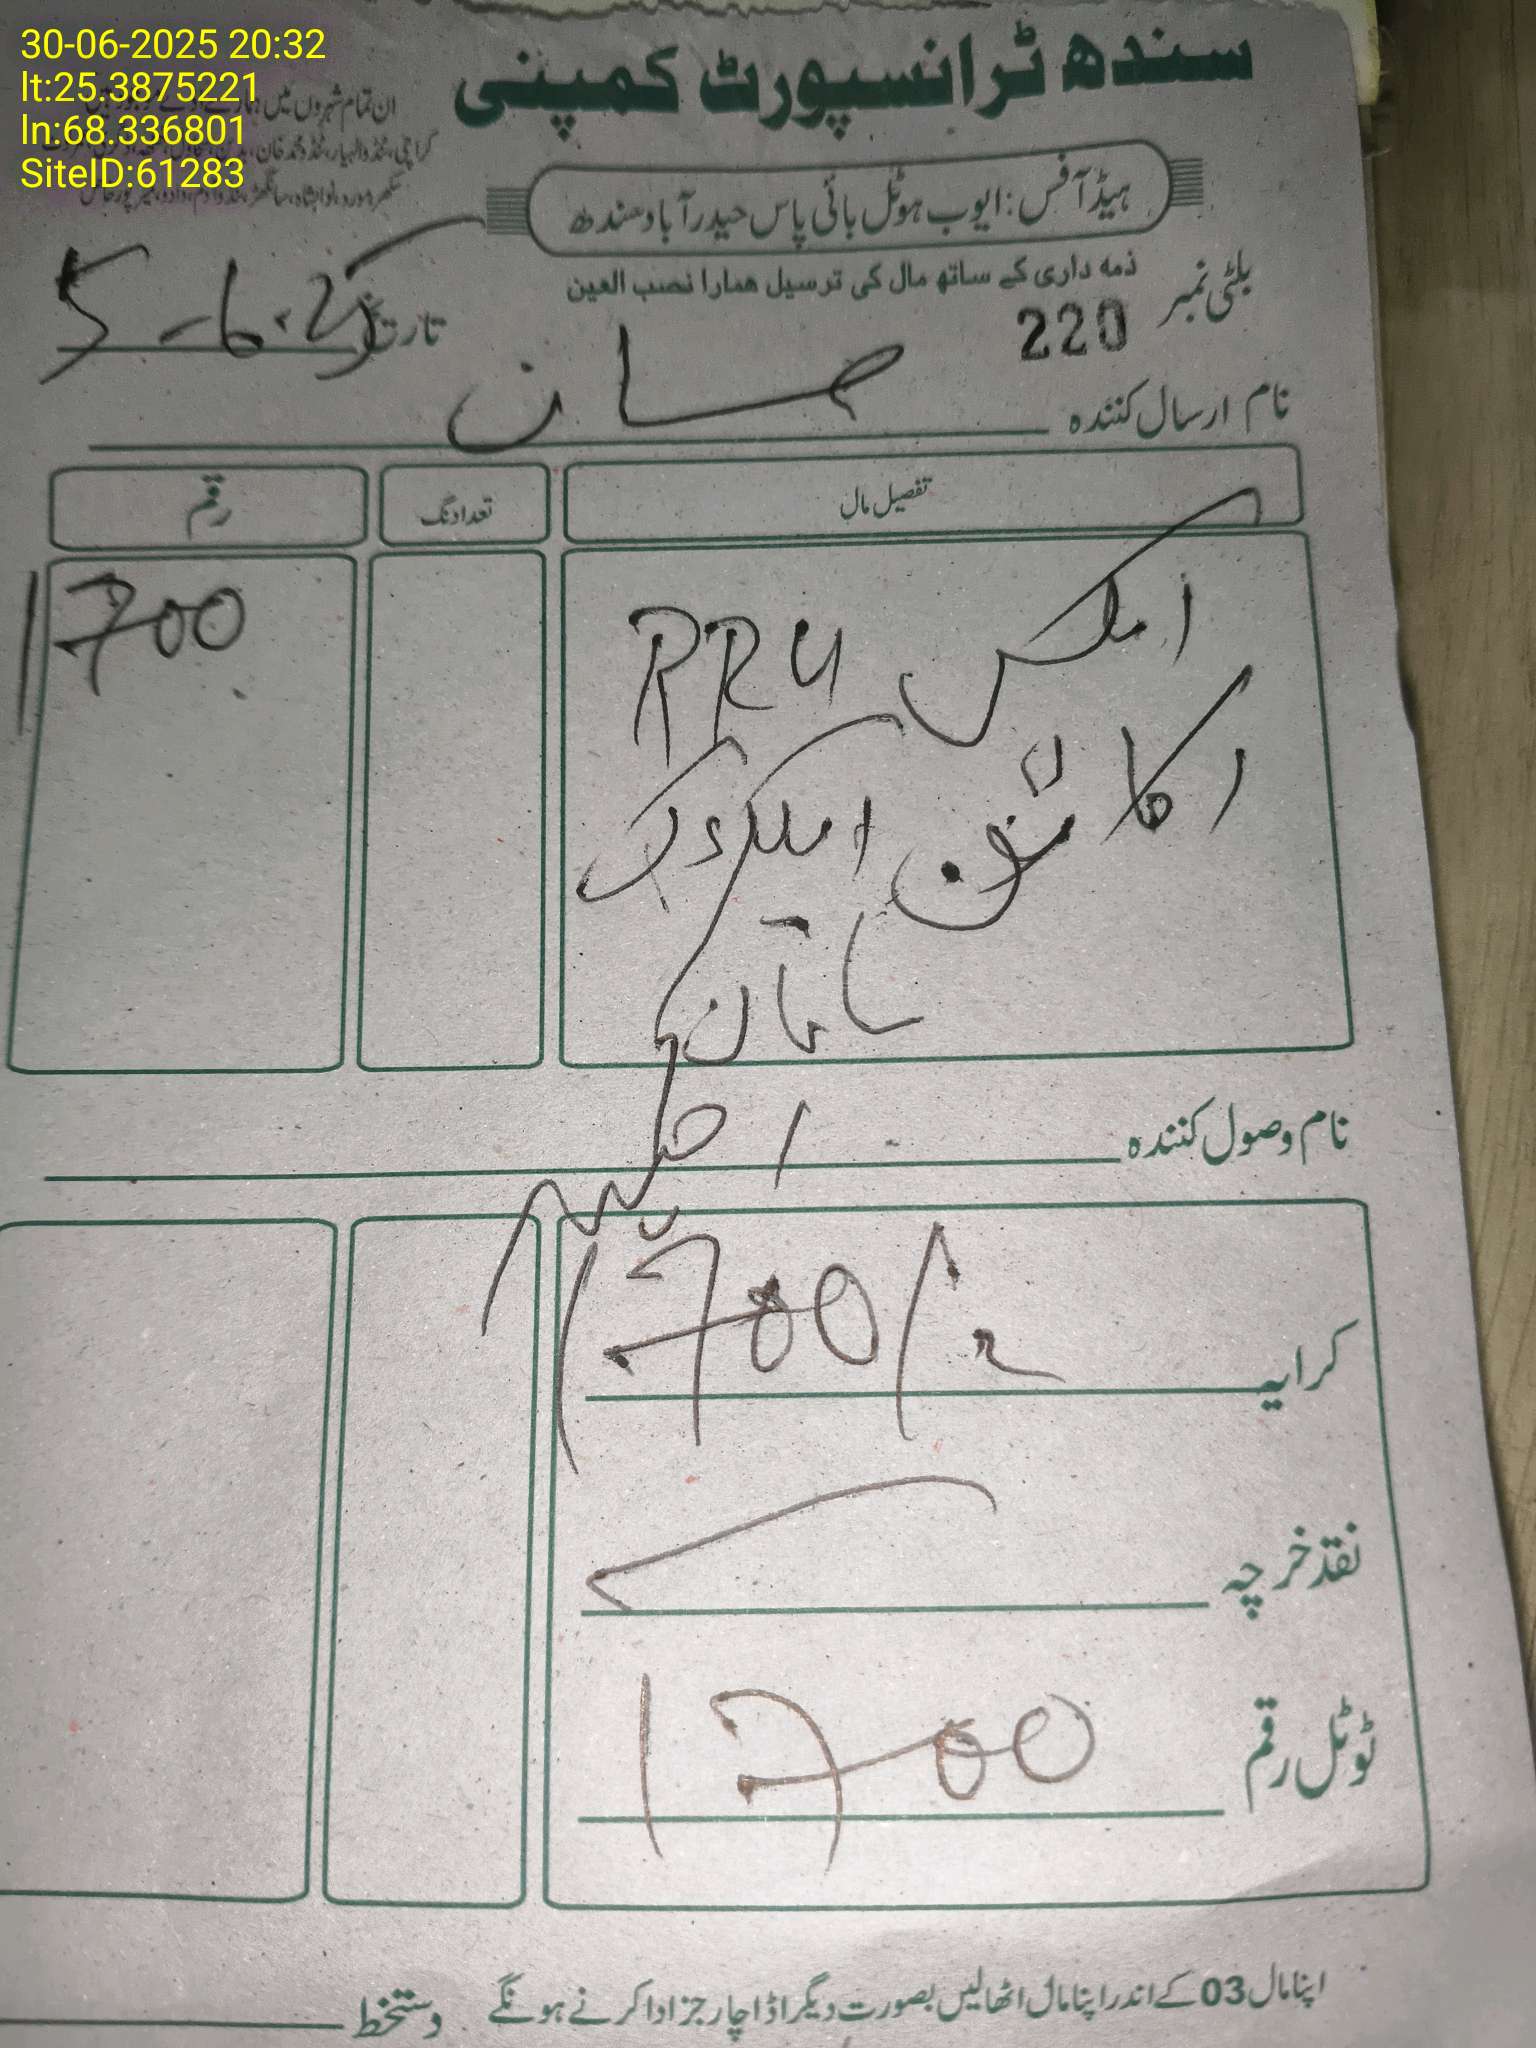 30-06-2025 20:32
lt:25.3875221
ln:68.336801
SiteID:61283
سندھ ٹرانسپورٹ کمپنی
ان تمام شہروں میں
کراچی، ٹنڈوالہیار، ٹنڈو محمد خان،
ہیڈ آفس: ایوب ہوٹل بائی پاس حیدرآباد سندھ
ذمہ داری کے ساتھ مال کی ترسیل ہمارا نصب العین
بلٹی نمبر 220
تاریخ 5-6-25
نام ارسال کنندہ حسان
تفصیل مال تعداد نگ رقم
RRU 1700
سامان
نام وصول کنندہ
کرایہ 1700/
نقد خرچہ
ٹوٹل رقم 1700
اپنا مال 03 کے اندر اپنا مال اٹھالیں بصورت دیگر اڈا چارجز ادا کرنے ہونگے
دستخط